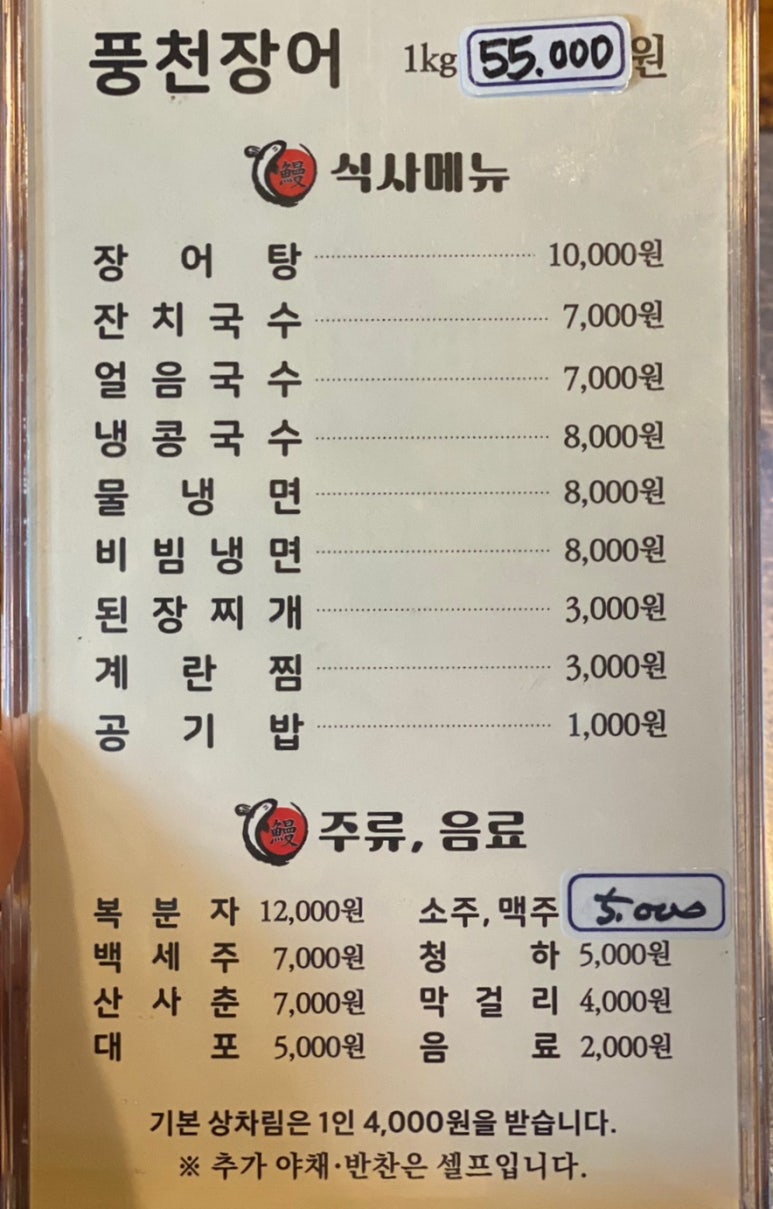 풍천장어 1kg 55.000원
鰻 식사메뉴
장어탕 10,000원
잔치국수 7,000원
얼음국수 7,000원
냉콩국수 8,000원
물냉면 8,000원
비빔냉면 8,000원
된장찌개 3,000원
계란찜 3,000원
공기밥 1,000원
鰻 주류, 음료
복분자 12,000원 소주, 맥주 5.000
백세주 7,000원 청하 5,000원
산사춘 7,000원 막걸리 4,000원
대포 5,000원 음료 2,000원
기본 상차림은 1인 4,000원을 받습니다.
※ 추가 야채·반찬은 셀프입니다.